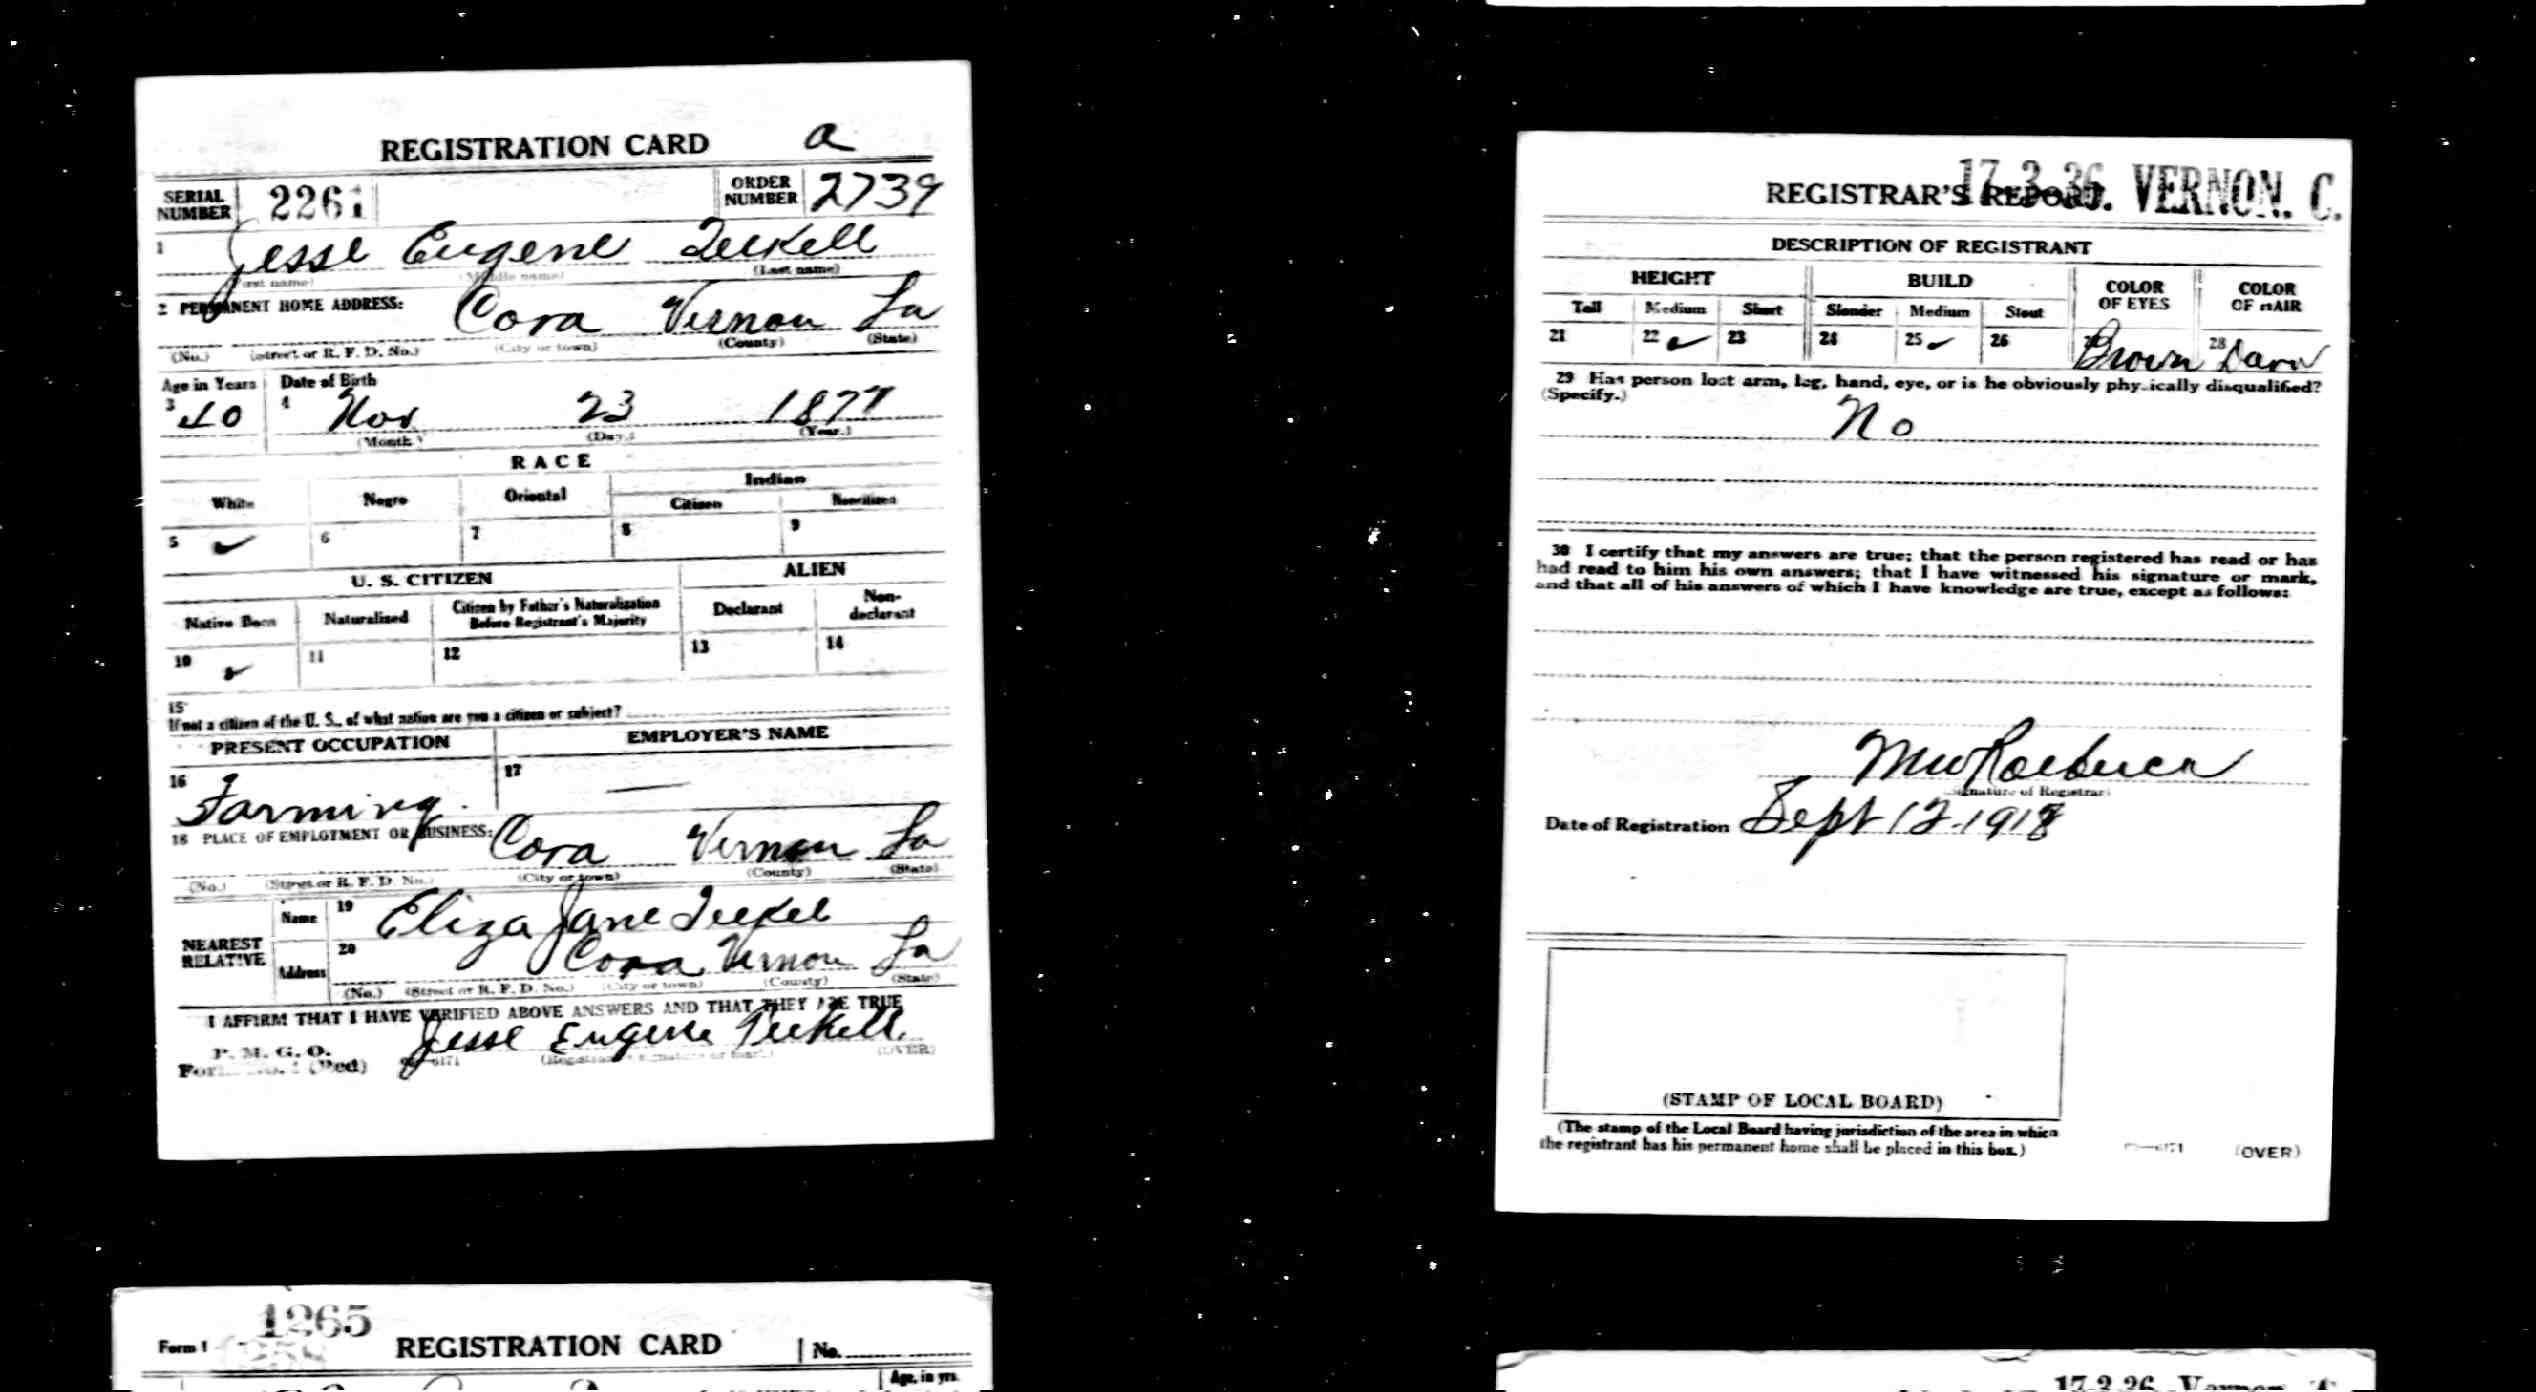 REGISTRATION CARD a
SERIAL NUMBER 2261 ORDER NUMBER 2739
1 Jesse Eugene Teekell
(First name) (Middle name) (Last name)
2 PERMANENT HOME ADDRESS: Cora Vernon La
(No.) (Street or R. F. D. No.) (City or town) (County) (State)
Age in Years Date of Birth
3 40 4 Nov 23 1877
(Month.) (Day.) (Year.)
RACE
White Negro Oriental Indian
Citizen Noncitizen
5 ✓ 6 7 8 9
U. S. CITIZEN ALIEN
Native Born Naturalized Citizen by Father's Naturalization Before Registrant's Majority Declarant Non-declarant
10 ✓ 11 12 13 14
15
If not a citizen of the U. S., of what nation are you a citizen or subject?
PRESENT OCCUPATION EMPLOYER'S NAME
16 Farming. 17 —
18 PLACE OF EMPLOYMENT OR BUSINESS: Cora Vernon La
(No.) (Street or R. F. D. No.) (City or town) (County) (State)
NEAREST RELATIVE Name 19 Eliza Jane Teekel
Address 20 Cora Vernon La
(No.) (Street or R. F. D. No.) (City or town) (County) (State)
I AFFIRM THAT I HAVE VERIFIED ABOVE ANSWERS AND THAT THEY ARE TRUE
P. M. G. O.
(Red) 6171 Jesse Eugene Teekell
(Registrant's signature or mark.) (OVER)
1265
Form 1 REGISTRATION CARD No.
Age, in yrs.
REGISTRAR'S REPORT 17-3-36. VERNON. C.
DESCRIPTION OF REGISTRANT
HEIGHT BUILD COLOR OF EYES COLOR OF HAIR
Tall Medium Short Slender Medium Stout
21 22 ✓ 23 24 25 ✓ 26 Brown 28 Dark
29 Has person lost arm, leg, hand, eye, or is he obviously physically disqualified?
(Specify.)
No
30 I certify that my answers are true; that the person registered has read or has
had read to him his own answers; that I have witnessed his signature or mark,
and that all of his answers of which I have knowledge are true, except as follows:
(Signature of Registrar)
Date of Registration Sept 12-1918
(STAMP OF LOCAL BOARD)
(The stamp of the Local Board having jurisdiction of the area in which
the registrant has his permanent home shall be placed in this box.)
6171 (OVER)
17-3-36 Vernon